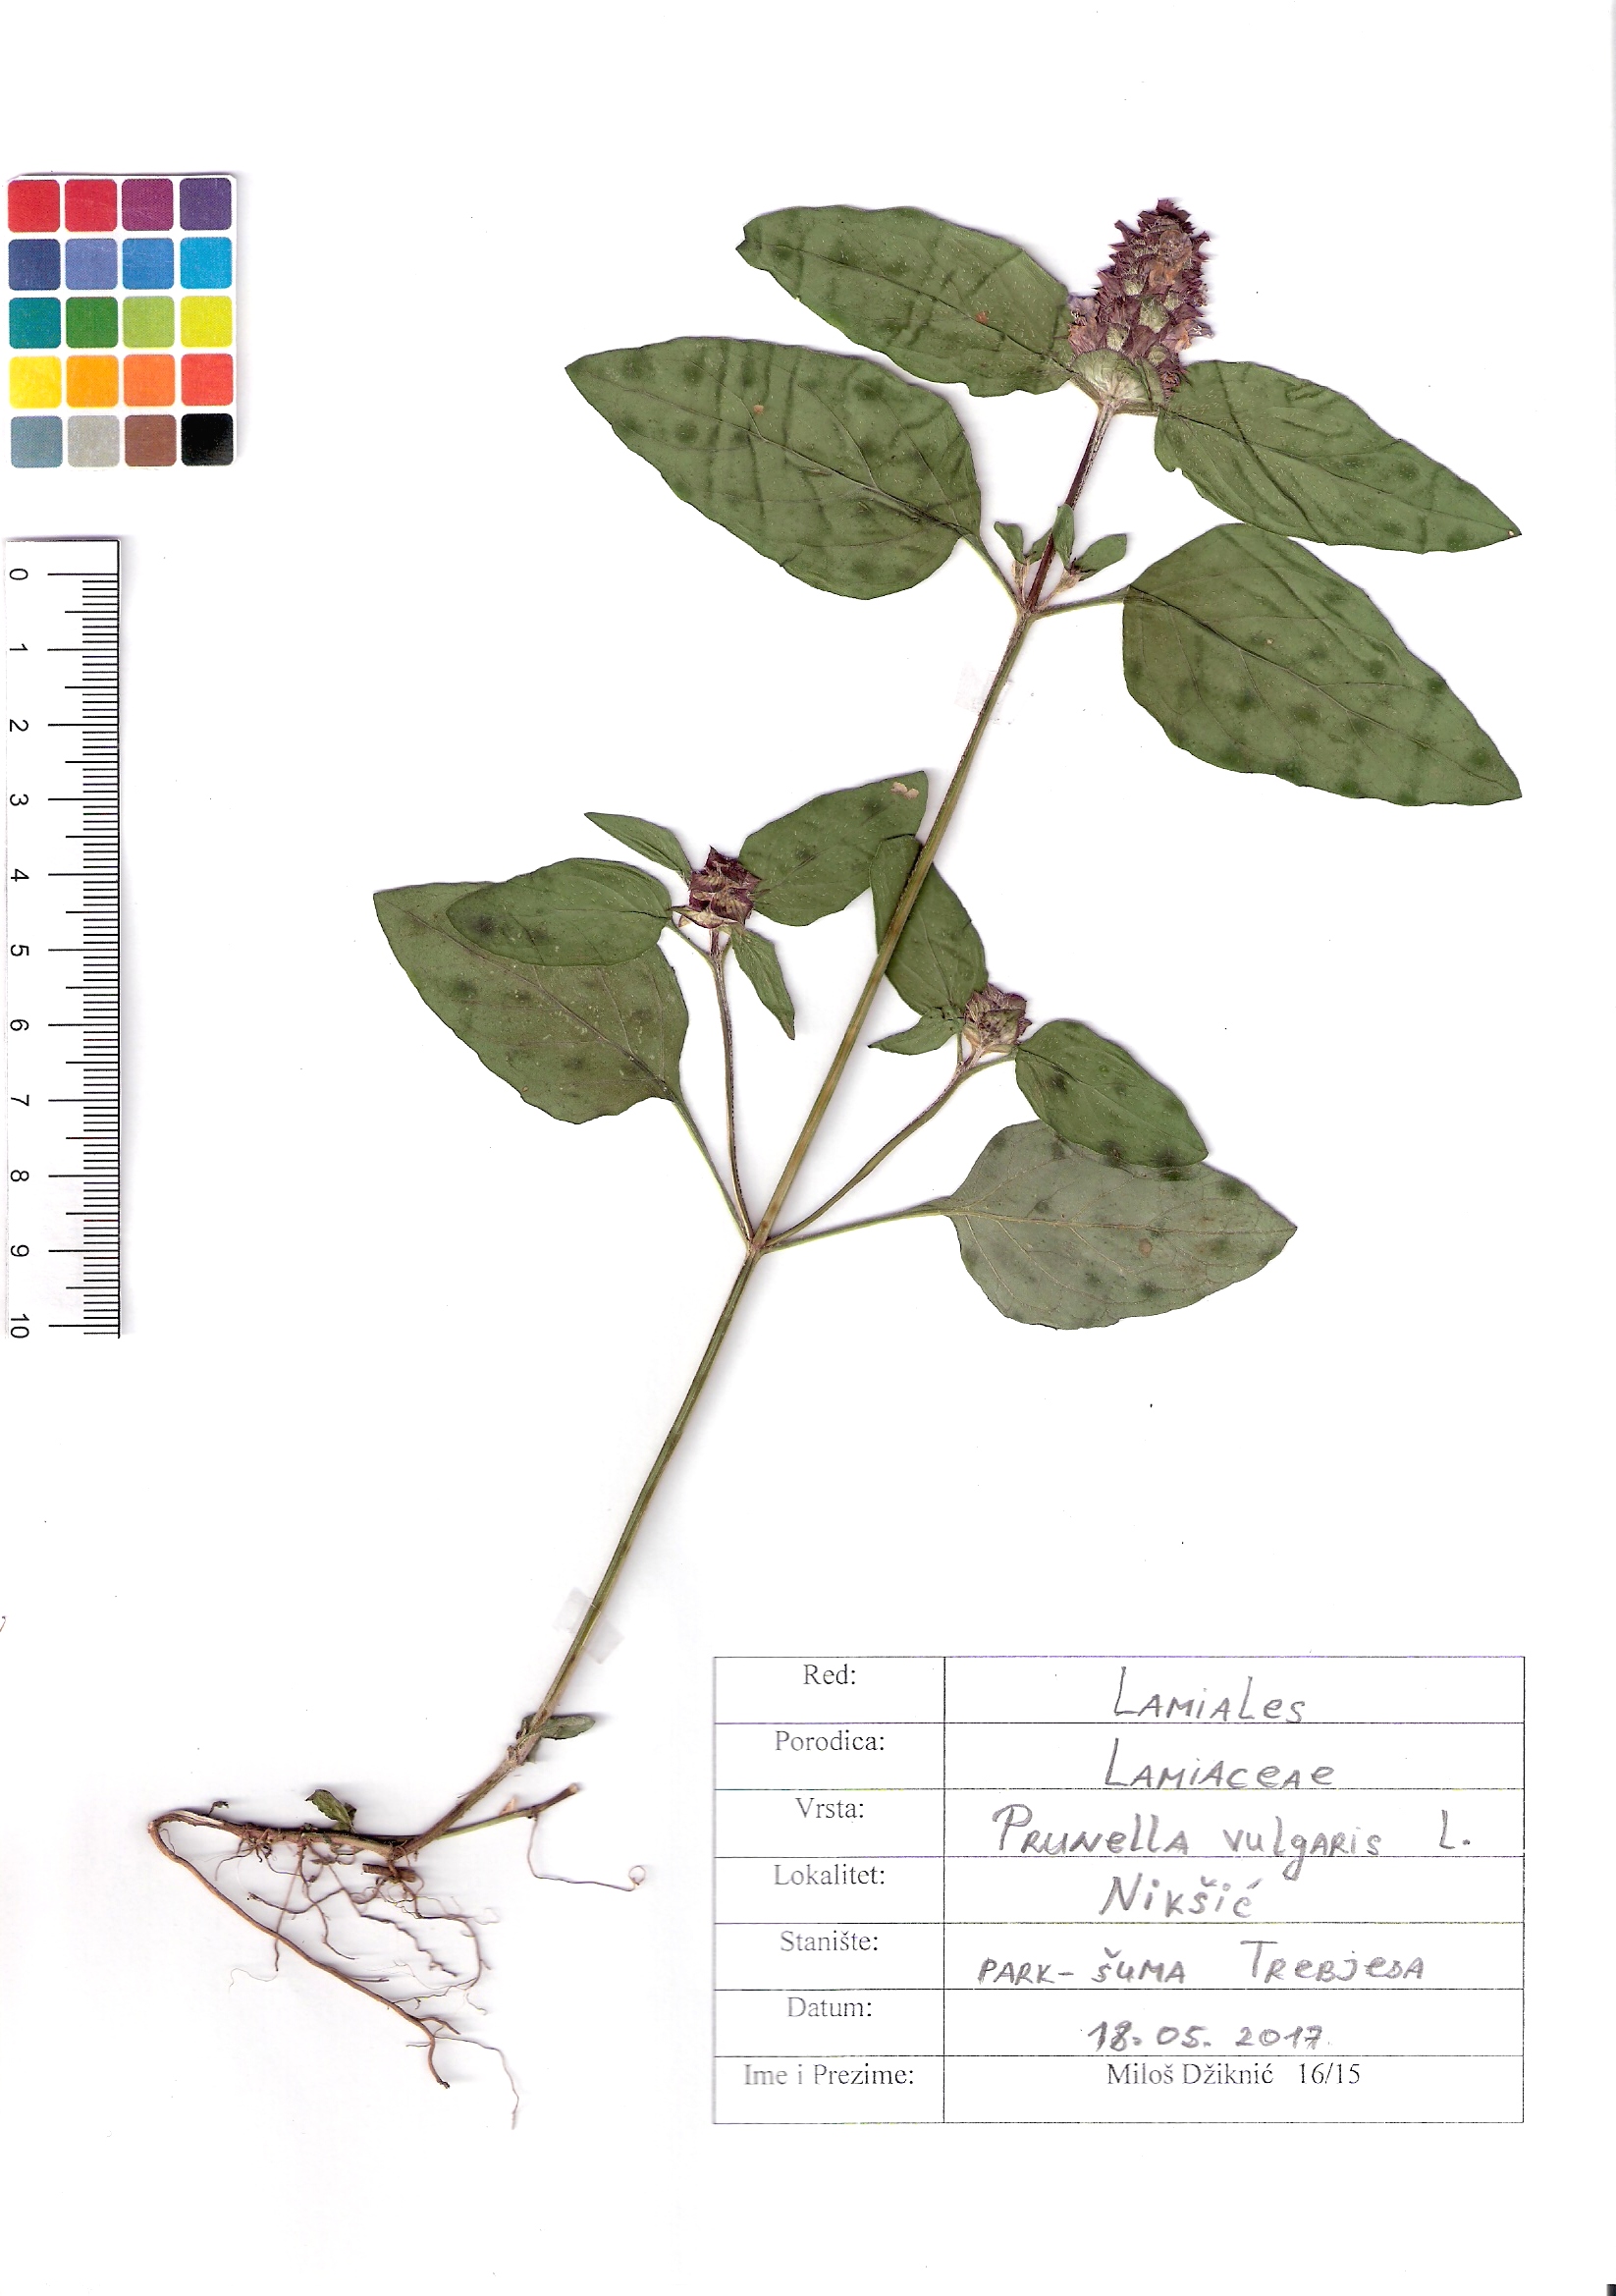 0
1
2
3
4
5
6
7
8
9
10
Red: Lamiales
Porodica: Lamiaceae
Vrsta: Prunella vulgaris L.
Lokalitet: Nikšić
Stanište: park-šuma Trebjesa
Datum: 18.05.2017.
Ime i Prezime: Miloš Džiknić 16/15